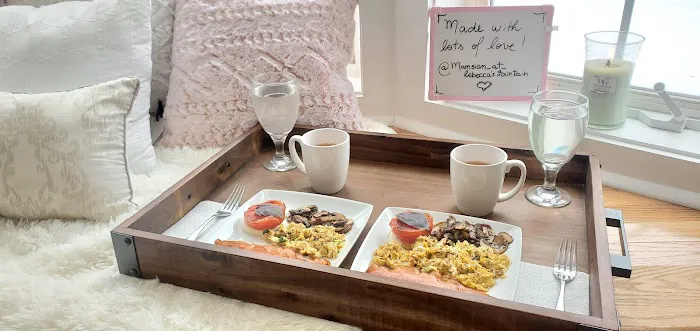 Made with
lots of love!
@Mansion_at_
Rebecca's Fountain